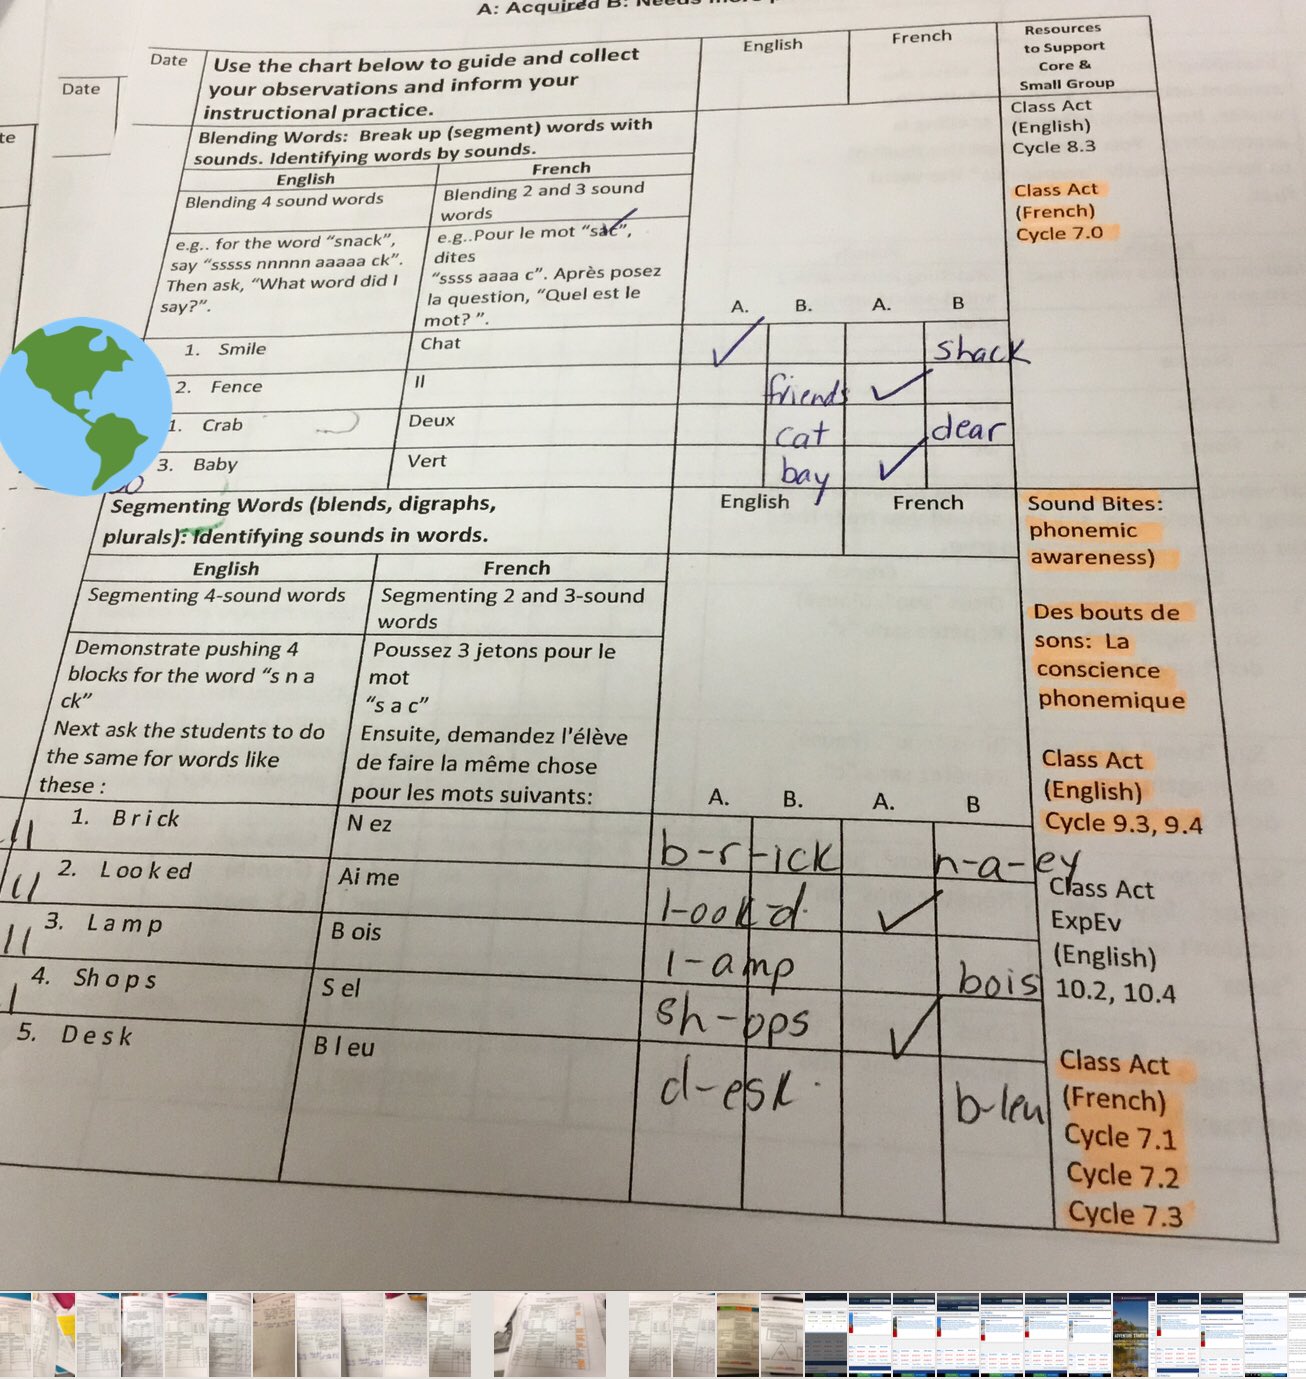 A: Acquired B: Needs more
Date
te
Date
Use the chart below to guide and collect
your observations and inform your
instructional practice.
English
French
Resources
to Support
Core &
Small Group
Blending Words: Break up (segment) words with
sounds. Identifying words by sounds.
Class Act
(English)
Cycle 8.3
English
French
Blending 4 sound words
Blending 2 and 3 sound
words
Class Act
(French)
Cycle 7.0
e.g.. for the word “snack”,
say “sssss nnnnn aaaaa ck”.
Then ask, “What word did I
say?”.
e.g..Pour le mot “sac”,
dites
“ssss aaaa c”. Après posez
la question, “Quel est le
mot? ”.
A.
B.
A.
B
1. Smile
Chat
✓
shack
2. Fence
Il
friends
✓
1. Crab
Deux
cat
dear
3. Baby
Vert
bay
✓
Segmenting Words (blends, digraphs,
plurals): Identifying sounds in words.
English
French
Sound Bites:
phonemic
awareness)
English
French
Segmenting 4-sound words
Segmenting 2 and 3-sound
words
Des bouts de
sons: La
conscience
phonemique
Demonstrate pushing 4
blocks for the word “s n a
ck”
Next ask the students to do
the same for words like
these :
Poussez 3 jetons pour le
mot
“s a c”
Ensuite, demandez l'élève
de faire la même chose
pour les mots suivants:
A.
B.
A.
B
Class Act
(English)
Cycle 9.3, 9.4
1. B r i c k
N ez
b-r-ick
n-a-ey
2. L oo k ed
Ai me
l-ook-d.
✓
Class Act
ExpEv
(English)
10.2, 10.4
3. L a m p
B ois
l-amp
bois
4. Sh o p s
S el
sh-ops
✓
5. D e s k
B l eu
d-esk
b-leu
Class Act
(French)
Cycle 7.1
Cycle 7.2
Cycle 7.3